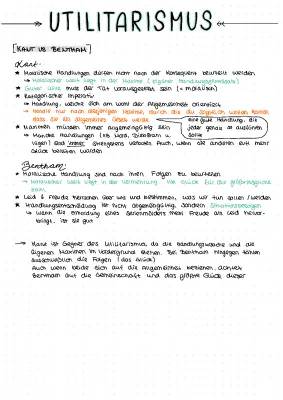 UTILITARISMUS
[KANT VS BENTHAM]
Kant:
★ Moralische Handlungen dürfen nicht nach der Konsequenz beurteilt werden
→ Moralischer Wert liegt in der Maxime (eigener Handlungsgrundsatz)
★ Guter Wille muss der Tat vorausgehen sein (= moralisch)
★ Kategorischer Imperativ
→ Handlung, welche sich am Wohl der Allgemeinheit orientiert
→ Handle nur nach derjenigen Maxime, durch die du zugleich wollen kannst,
dass sie ein allgemeines Gesetz werde
eine gute Handlung, die
jeder genau so ausführen
sollte
★ Maximen müssen immer allgemeingültig sein
→ Manche Handlungen (z.B. Mord, Diebstahl u.
Lügen) sind immer strengstens verboten. Auch wenn sie anderen evtl. mehr
Leben bereiten würden
Bentham:
★ Moralische Handlung sind nach ihren Folgen zu beurteilen
→ Moralischer Wert liegt in der Vermehrung von Glück für die größtmögliche
zahl
★ Leid & Freude herrschen über uns und bestimmen, was wir tun sollen/werden
★ Handlungsentscheidung ist nicht allgemeingültig, sondern Situationsbezogen
→ wenn die Ermordung eines Serienmörders mehr Freude als Leid hervor-
bringt, ist sie gut
→ Kant ist Gegner des Utilitarismus, da die Handlungsweise und die
eigenen Maximen im Vordergrund stehen. Bei Bentham hingegen zählen
ausschließlich die Folgen (das Glück)
Auch wenn beide sich auf die Allgemeinheit beziehen, achtet
Bentham auf die Gemeinschaft und das größte Glück dieser